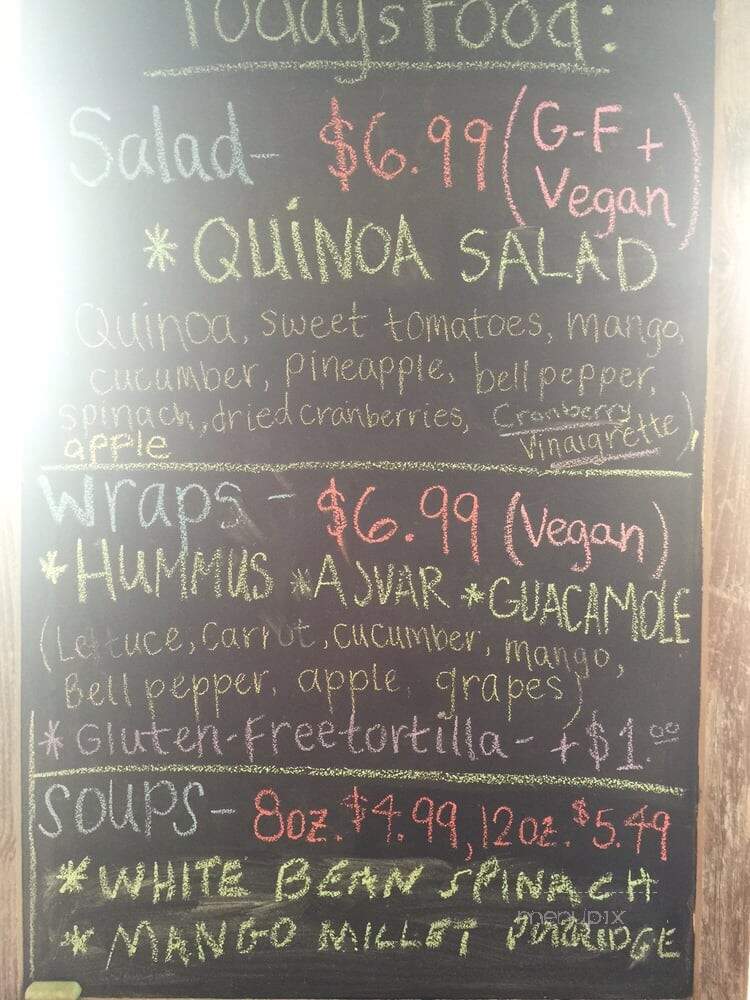 Todays Food:
Salad- $6.99 (G-F + Vegan)
*QUINOA SALAD
Quinoa, sweet tomatoes, mango,
cucumber, pineapple, bell pepper,
spinach, dried cranberries, Cranberry
apple Vinaigrette)
Wraps- $6.99 (Vegan)
*HUMMUS *AJVAR *GUACAMOLE
(Lettuce, carrot, cucumber, mango,
Bell pepper, apple, grapes)
*Gluten-Free tortilla- +$1.00
SOUPS- 8oz. $4.99, 12oz. $5.49
*WHITE BEAN SPINACH
menupix
*MANGO MILLET PORRIDGE